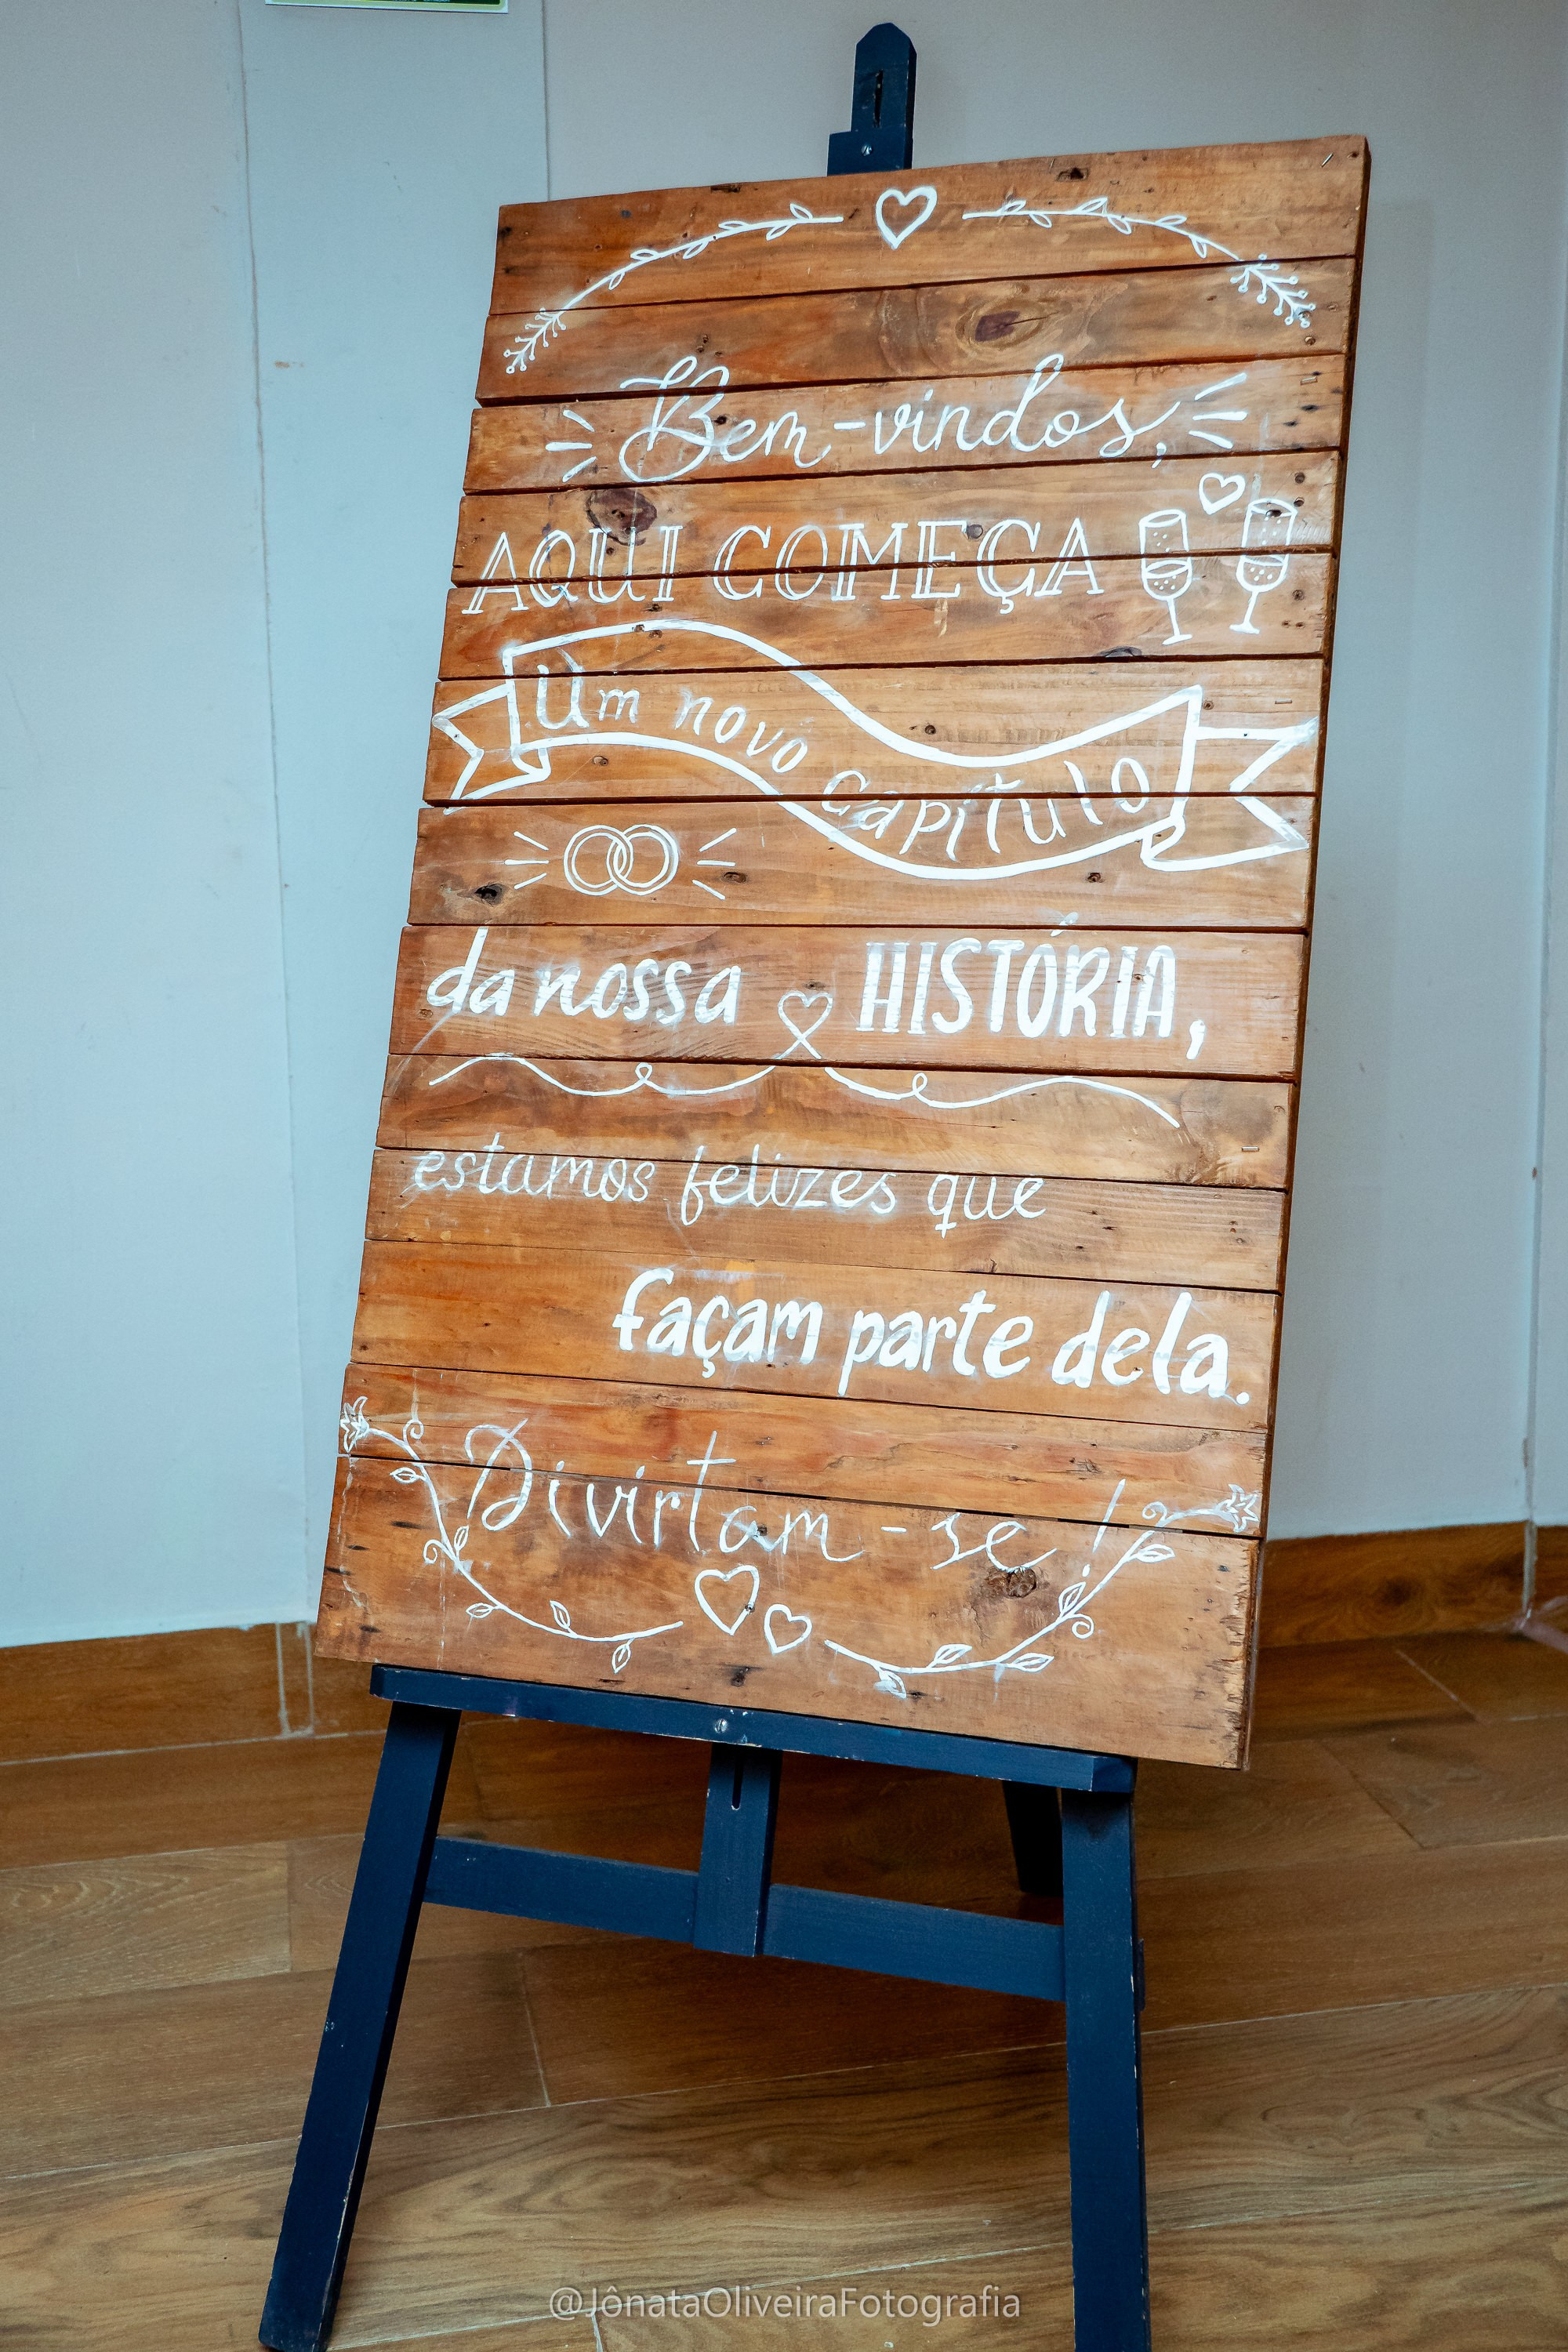 Bem-vindos,
AQUI COMEÇA
Um novo capítulo
da nossa HISTÓRIA,
estamos felizes que
façam parte dela.
Divirtam-se!
@JônataOliveiraFotografia